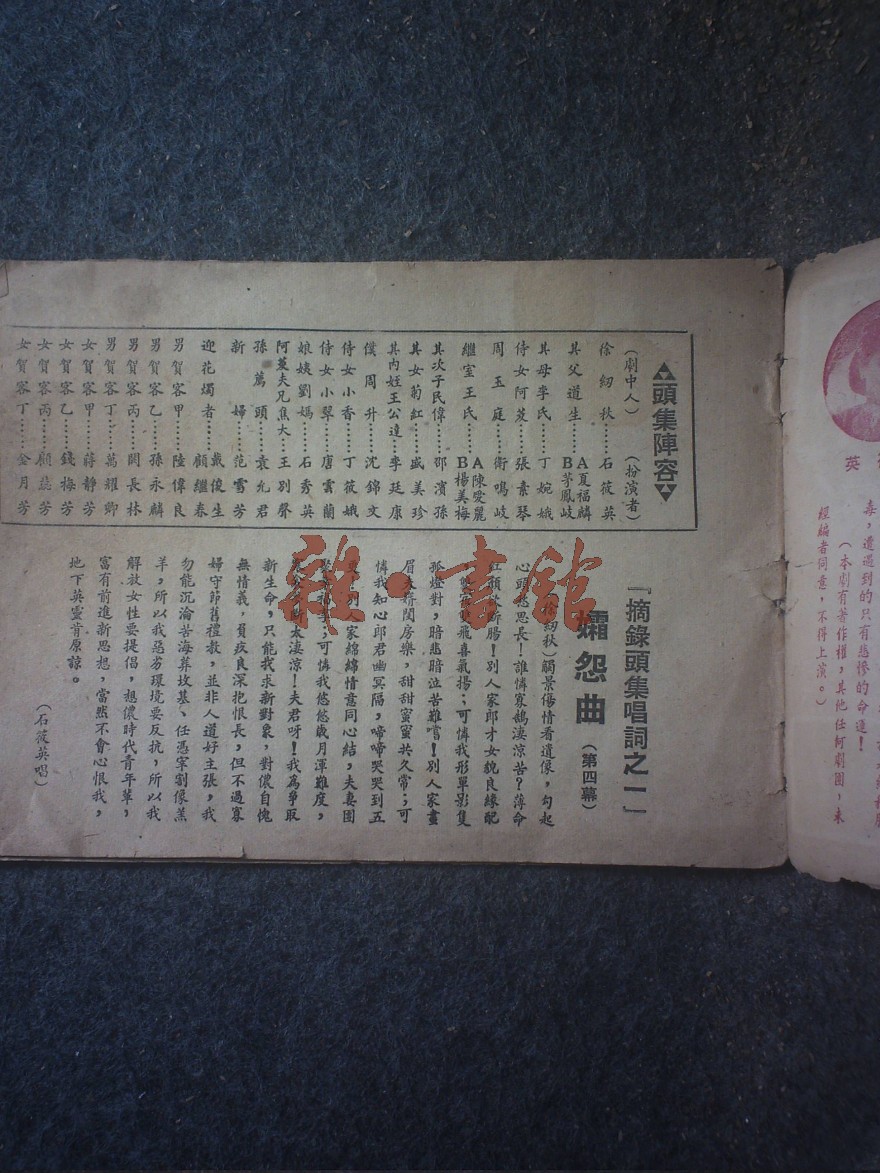 頭集陣容
(劇中人) (扮演者)
徐紉秋……石筱英
其父道生……A夏福麟 B茅鳳岐
其母李氏……丁婉娥
侍女阿菱……張素琴
周玉庭……衛鳴岐
繼室王氏……A陳愛麗 B楊美梅
其次子民偉……邵濱孫
其女菊紅……戚美珍
其內姪王公達……李廷康
僕周升……沈錦文
侍女小香……丁筱娥
侍女小翠……唐雲蘭
娘姨劉媽……石秀英
阿菱夫兄焦大……王別聲
孫篤頭……袁允君
新婦……范雪芳
迎花燭者……戴俊生 顧繼春
男賀客甲……陸偉良
男賀客乙……孫永麟
男賀客丙……關長林
男賀客丁……萬耀卿
女賀客甲……蔣靜芳
女賀客乙……錢梅芳
女賀客丙……顧蕊芳
女賀客丁……金月芳
「摘錄頭集唱詞之一」
孀怨曲 (第四幕)
徐紉秋)觸景傷情看遺像,勾起
心頭愁思長!誰憐寡鵠淒涼苦?薄命
紅顏 斷腸!別人家郎才女貌良緣配
雙飛喜氣揚;可憐我形單影隻
孤燈對,暗悲暗泣苦難嘗!別人家畫
眉 閨房樂,甜甜蜜蜜共久常;可
憐我知心郎君幽冥隔,啼啼哭哭到五
別 家綿綿情意同心結,夫妻團
;可憐我悠悠歲月渾難度,
太淒涼!夫君呀!我為爭取
新生命,只能我求新對象,對儂自愧
無情義,負疚良深抱恨長,但不過寡
婦守節舊禮教,並非人道好主張,我
勿能沉淪苦海葬坟墓、任憑宰割像羔
羊,所以我惡劣環境要反抗,所以我
解放女性要提倡,想儂時代青年輩,
富有前進新思想,當然不會心恨我,
地下英靈肯原諒。
(石筱英唱)
英
毒,遭遇到的只有悲慘的命運!
(本劇有著作權,其他任何劇團,未
經編者同意,不得上演。)
雜·書館